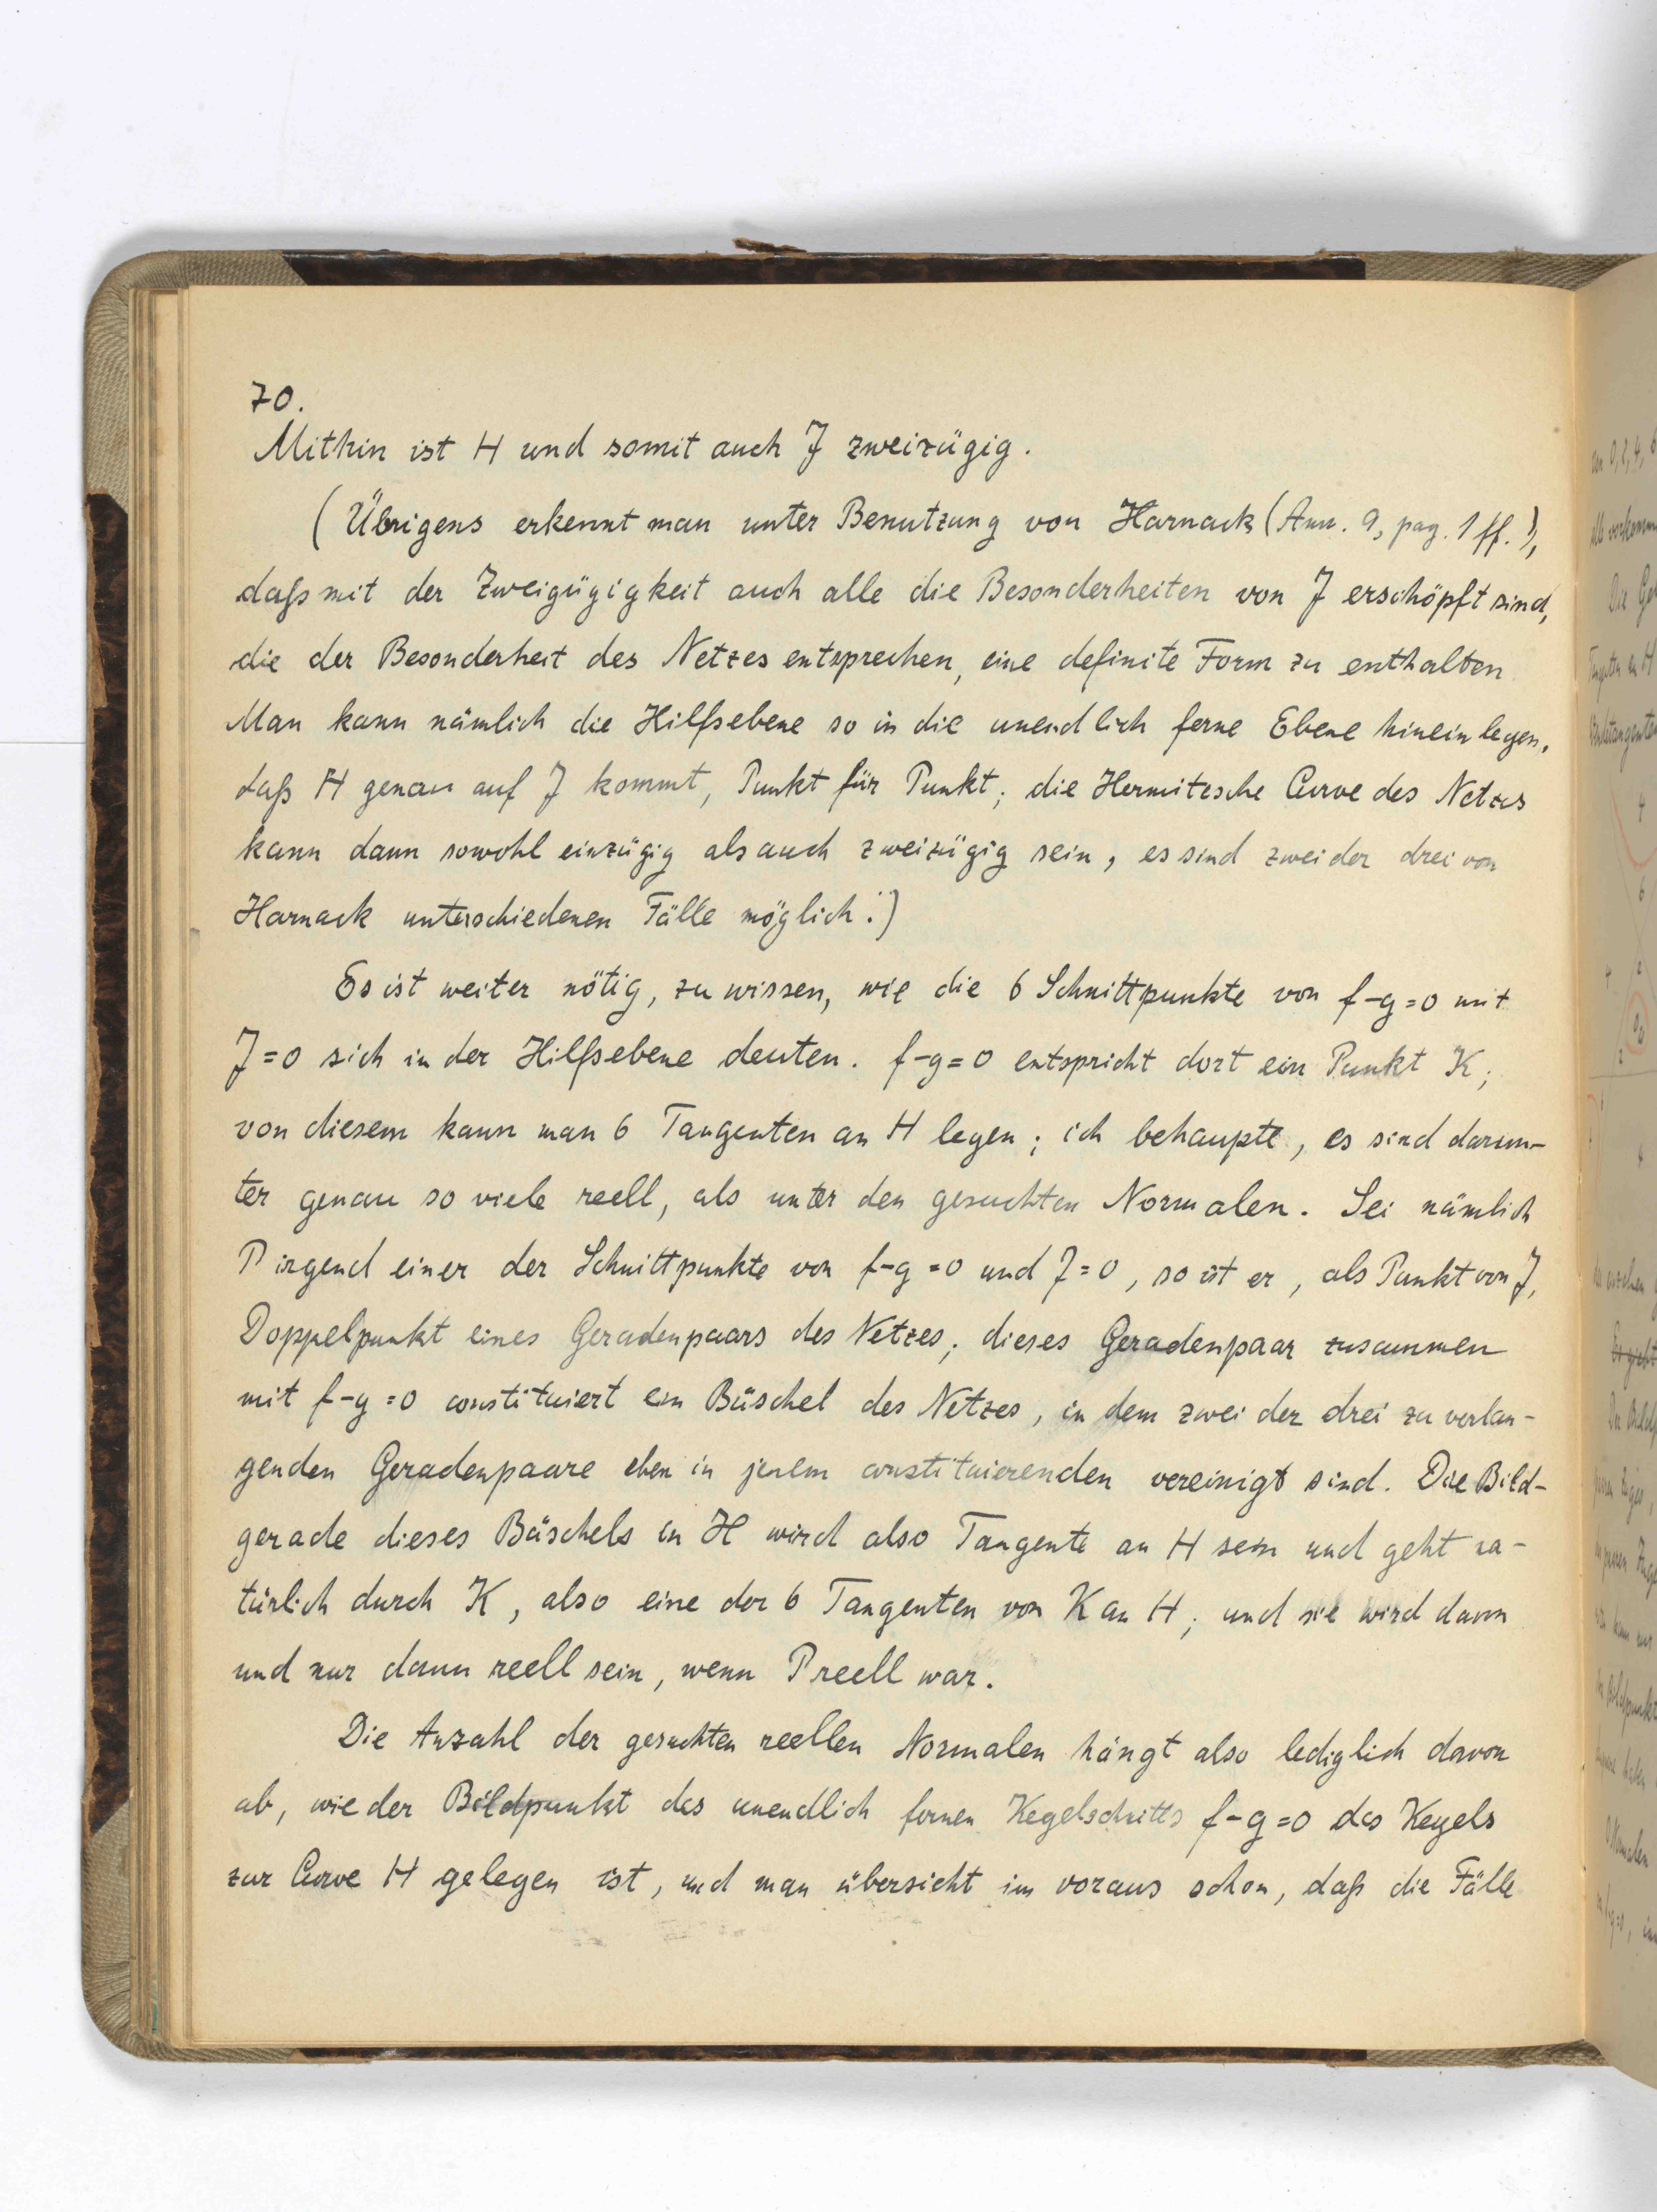 70.
Mithin ist H und somit auch J zweizügig.
(Übrigens erkennt man unter Benutzung von Harnack (Ann. 9, pag. 1 ff.),
daß mit der Zweizügigkeit auch alle die Besonderheiten von J erschöpft sind,
die der Besonderheit des Netzes entsprechen, eine definite Form zu enthalten.
Man kann nämlich die Hilfsebene so in die unendlich ferne Ebene hineinlegen,
daß H genau auf J kommt, Punkt für Punkt; die Hermitesche Curve des Netzes
kann dann sowohl einzügig als auch zweizügig sein, es sind zwei der drei von
Harnack unterschiedenen Fälle möglich.)
Es ist weiter nötig, zu wissen, wie die 6 Schnittpunkte von f-g=0 mit
J=0 sich in der Hilfsebene deuten. f-g=0 entspricht dort ein Punkt K;
von diesem kann man 6 Tangenten an H legen; ich behaupte, es sind darun-
ter genau so viele reell, als unter den gesuchten Normalen. Sei nämlich
P irgend einer der Schnittpunkte von f-g=0 und J=0, so ist er, als Punkt von J,
Doppelpunkt eines Geradenpaars des Netzes; dieses Geradenpaar zusammen
mit f-g=0 constituiert ein Büschel des Netzes, in dem zwei der drei zu verlan-
genden Geradenpaare eben in jenem constituierenden vereinigt sind. Die Bild-
gerade dieses Büschels in H wird also Tangente an H sein und geht na-
türlich durch K, also eine der 6 Tangenten von K an H; und sie wird dann
und nur dann reell sein, wenn P reell war.
Die Anzahl der gesuchten reellen Normalen hängt also lediglich davon
ab, wie der Bildpunkt des unendlich fernen Kegelschnitts f-g=0 des Kegels
zur Curve H gelegen ist, und man übersieht im voraus schon, daß die Fälle